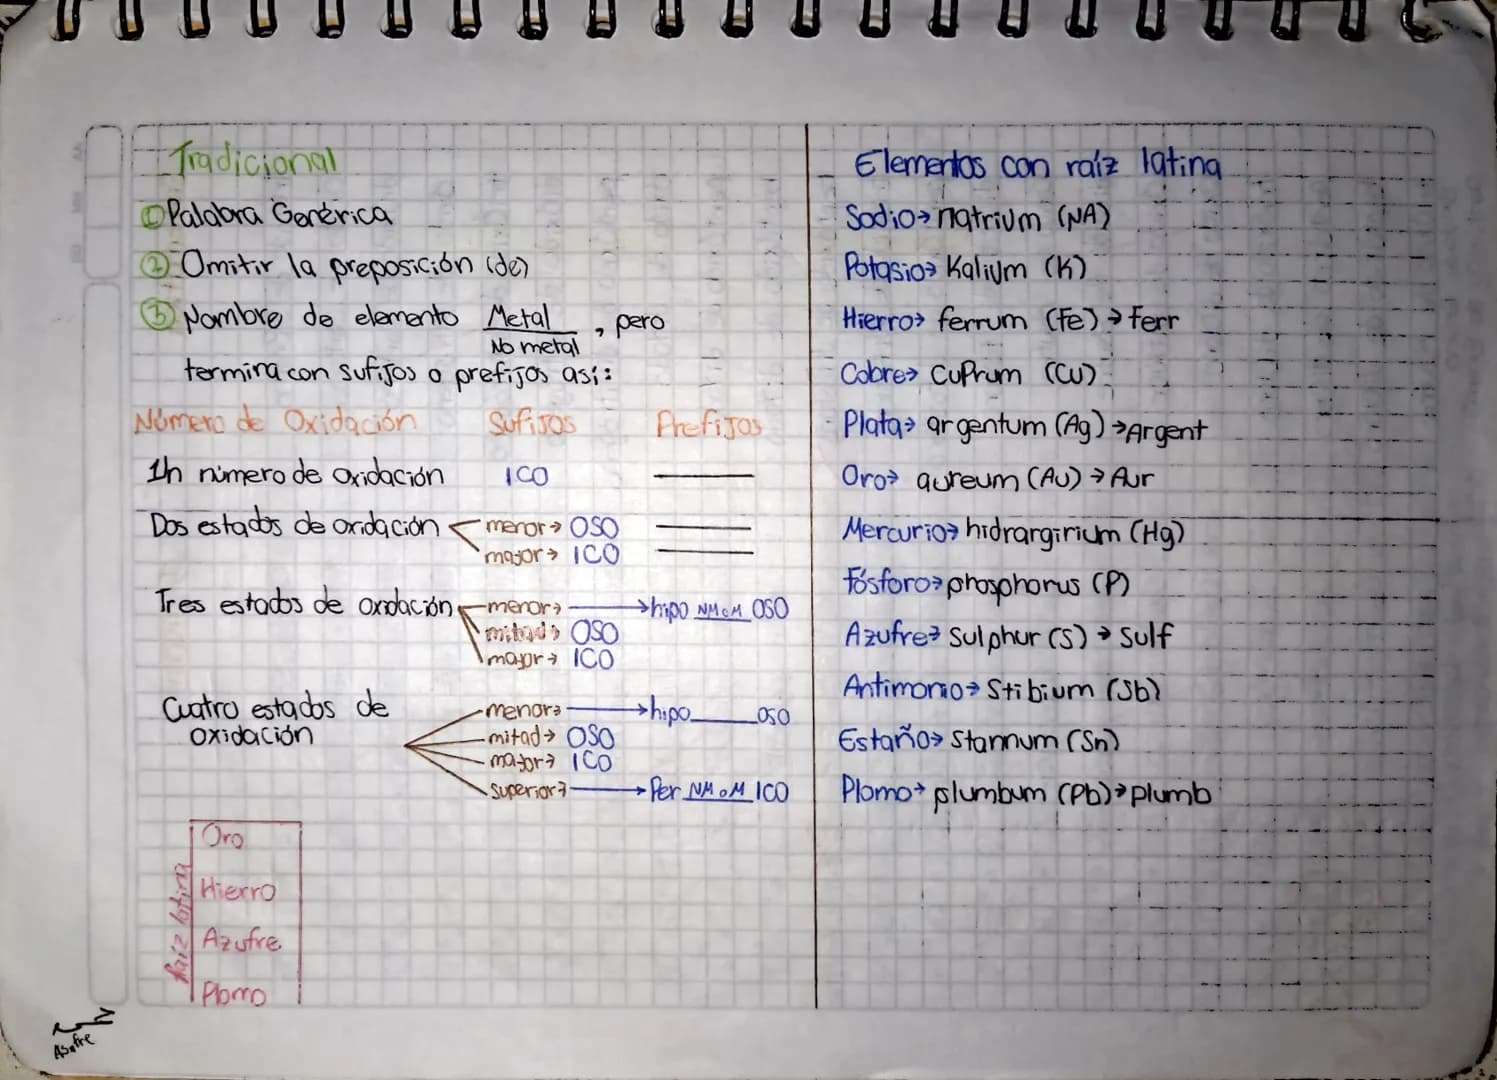 Tradicional
① Palabra Genérica
② Omitir la preposición (de)
③ Nombre de elemento Metal / No metal, pero
termina con sufijos o prefijos así:
Número de Oxidación Sufijos Prefijos
Un número de oxidación ICO ———
Dos estados de oxidación menor→ OSO ———
mayor→ ICO ———
Tres estados de oxidación menor→ ———→hipo NM o M OSO
mitad→ OSO
mayor→ ICO
Cuatro estados de
oxidación
menor→ ———→hipo______oso
mitad→ OSO
mayor→ ICO
superior→ ———→ Per NM o M ICO
Raíz latina
Oro
Hierro
Azufre
Plomo
Asufre
Elementos con raíz latina
Sodio→ natrium (NA)
Potasio→ Kalium (K)
Hierro→ ferrum (Fe) → Ferr
Cobre→ Cuprum (Cu)
Plata→ argentum (Ag) →Argent
Oro→ aureum (Au) → Aur
Mercurio→ hidrargirium (Hg)
Fósforo→ phosphorus (P)
Azufre→ Sulphur (S) → Sulf
Antimonio→ Stibium (Sb)
Estaño→ Stannum (Sn)
Plomo→ plumbum (Pb)→ plumb